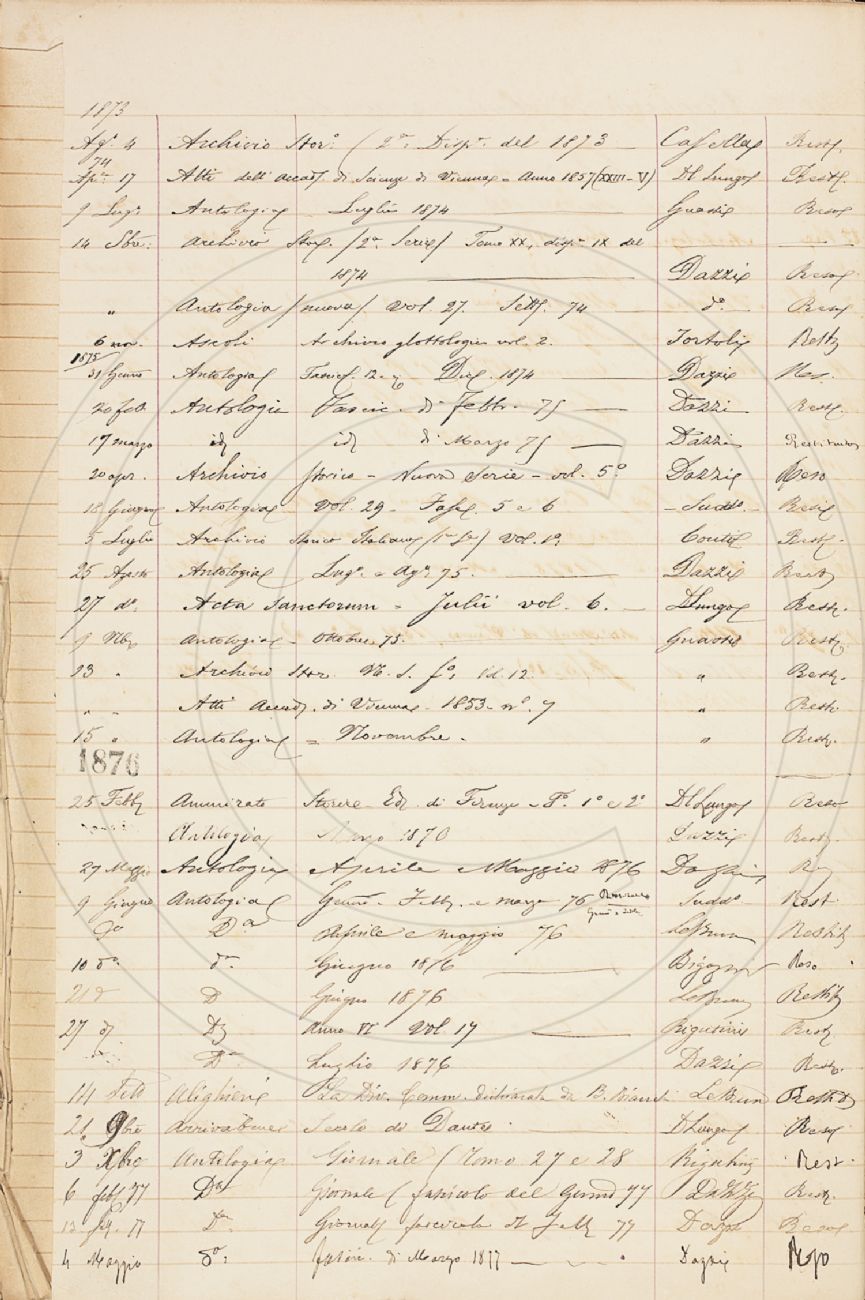 1873
Ago. 4 Archivio Stor.o (2a. Disp.a del 1873 — Casella Rest.
74
Apr. 17 Atti dell'accad. di Scienze di Vienna - Anno 1857 (XXIII-V) Dl Lungo Rest.
9 Lug. Antologia Luglio 1874 Guasti Reso
14 Sbre: Archivio Stor. (2a Serie) Tomo XX, disp.a IX del
1874 — Dazzi Reso
" Antologia (nuova) Vol. 27. Sett. 74 — do. Reso
6 nov. Ascoli Archivio glottologico vol. 2. Tortoli Resto
1875
31 Genno Antologia Fascic. 12. Dic. 1874 — Dazzi Res.
20 feb. Antologia Fascic. di Febbr. 75 — Dazzi Rest.
17 marzo id id di Marzo 75 — Dazzi Restituito
20 apr. Archivio Storico - Nuova Serie - vol. 5o Dazzi Reso
18 Giugno Antologia Vol. 29 - Fasc. 5 e 6 - Sudd.o
5 Luglio Archivio Storico Italiano (1a Sa) Vol. 1o. Conti Rest.
25 Agosto Antologia Lugo. e Ago. 75. — Dazzi Rest.
27 do. Acta Sanctorum - Julii vol. 6. — Dl Lungo Rest.
9 Nbre Antologia - Ottobre, 75. Guasti Rest.
23 " Archivio Stor. N. S. " Rest.
" " Atti Accad. di Vienna - 1853 - no. 7 " Rest.
15 " Antologia = Novembre - " Rest.
1876
25 Febb. Ammirato Storie - Ediz. di Firenze - To. 1o e 2o Dl Lungo Reso
Antologia Marzo 1870 Dazzi Rest.
27 Maggio Antologia Aprile e Maggio 1876 Dazzi
9 Giugno Antologia Genno. - Febb. e marzo 76 Sudd.o Rest
Do Da Aprile e maggio 76 LeBrun Restit.
10 do da. Giugno 1876 — Reso
21 d D Giugno 1876 LeBrun Restit.
27 d D Anno VI Vol. 17 — Rigutini Rest.
Da Luglio 1876 Dazzi Rest.
14 Alighieri La Div. Comm. dichiarata da B. Bianchi LeBrun
21. 9bre Arrivabene Secolo di Dante Dl Lungo Reso
3 Xbre Antologia Giornale (Tomo 27 e 28 Rigutini Rest.
6 feb. 77 Da Giornale (fascicolo del Genno 77 Dazzi Rest.
13 feb. 77 Da Giornale fascicolo di Febb. 77 Dazzi Reso
4 Maggio da: fascic. di Marzo 1877 — Dazzi Reso